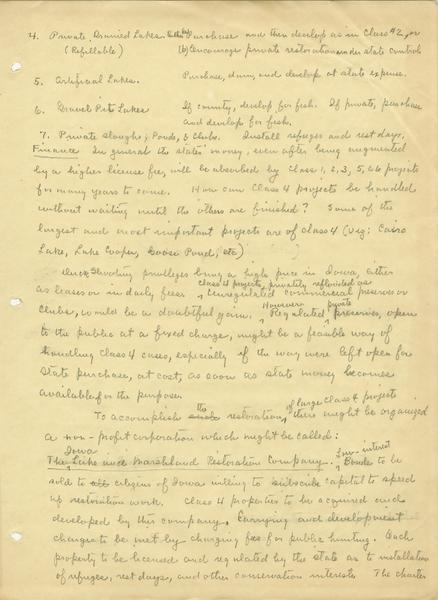 4. Private Drained Lakes. (a) Purchase and then develop as in Class #2, or
(Refillable) (b) Encourage private restoration under state control.
5. Artificial Lakes. Purchase, dam, and develop at state expense.
6. Gravel Pit Lakes If county, develop for fish. If private, purchase
and develop for fish.
7. Private Sloughs, Ponds, & Clubs. Install refuges and rest days.
Finance In general the states' money, even after being augmented
by a higher license fee, will be absorbed by Class 1, 2, 3, 5, & 6 projects
for many years to come. How can Class 4 projects be handled
without waiting until the others are finished? Some of the
largest and most important projects are of class 4 (viz: Cairo
Lake, Lake Cooper, Goose Pond, etc)
Duck Shooting privileges bring a high price in Iowa, either
as leases or in daily fees. Class 4 projects, privately reflooded as
Unregulated commercial preserves or
clubs, would be a doubtful gain. However, Regulated private preserves, open
to the public at a fixed charge, might be a feasible way of
handling class 4 cases, especially if the way were left open for
State purchase, at cost, as soon as state money becomes
available for the purpose.
To accomplish the restoration of large class 4 projects there might be organized
a non-profit corporation which might be called:
The Iowa Lake and Marshland Restoration Company. Low-interest Bonds to be
sold to citizens of Iowa willing to subscribe capital to speed
up restoration work. Class 4 properties to be acquired and
developed by this company. Carrying and development
charges to be met by charging fees for public hunting. Each
property to be licensed and regulated by the state as to installation
of refuges, rest days, and other conservation interests. The charter